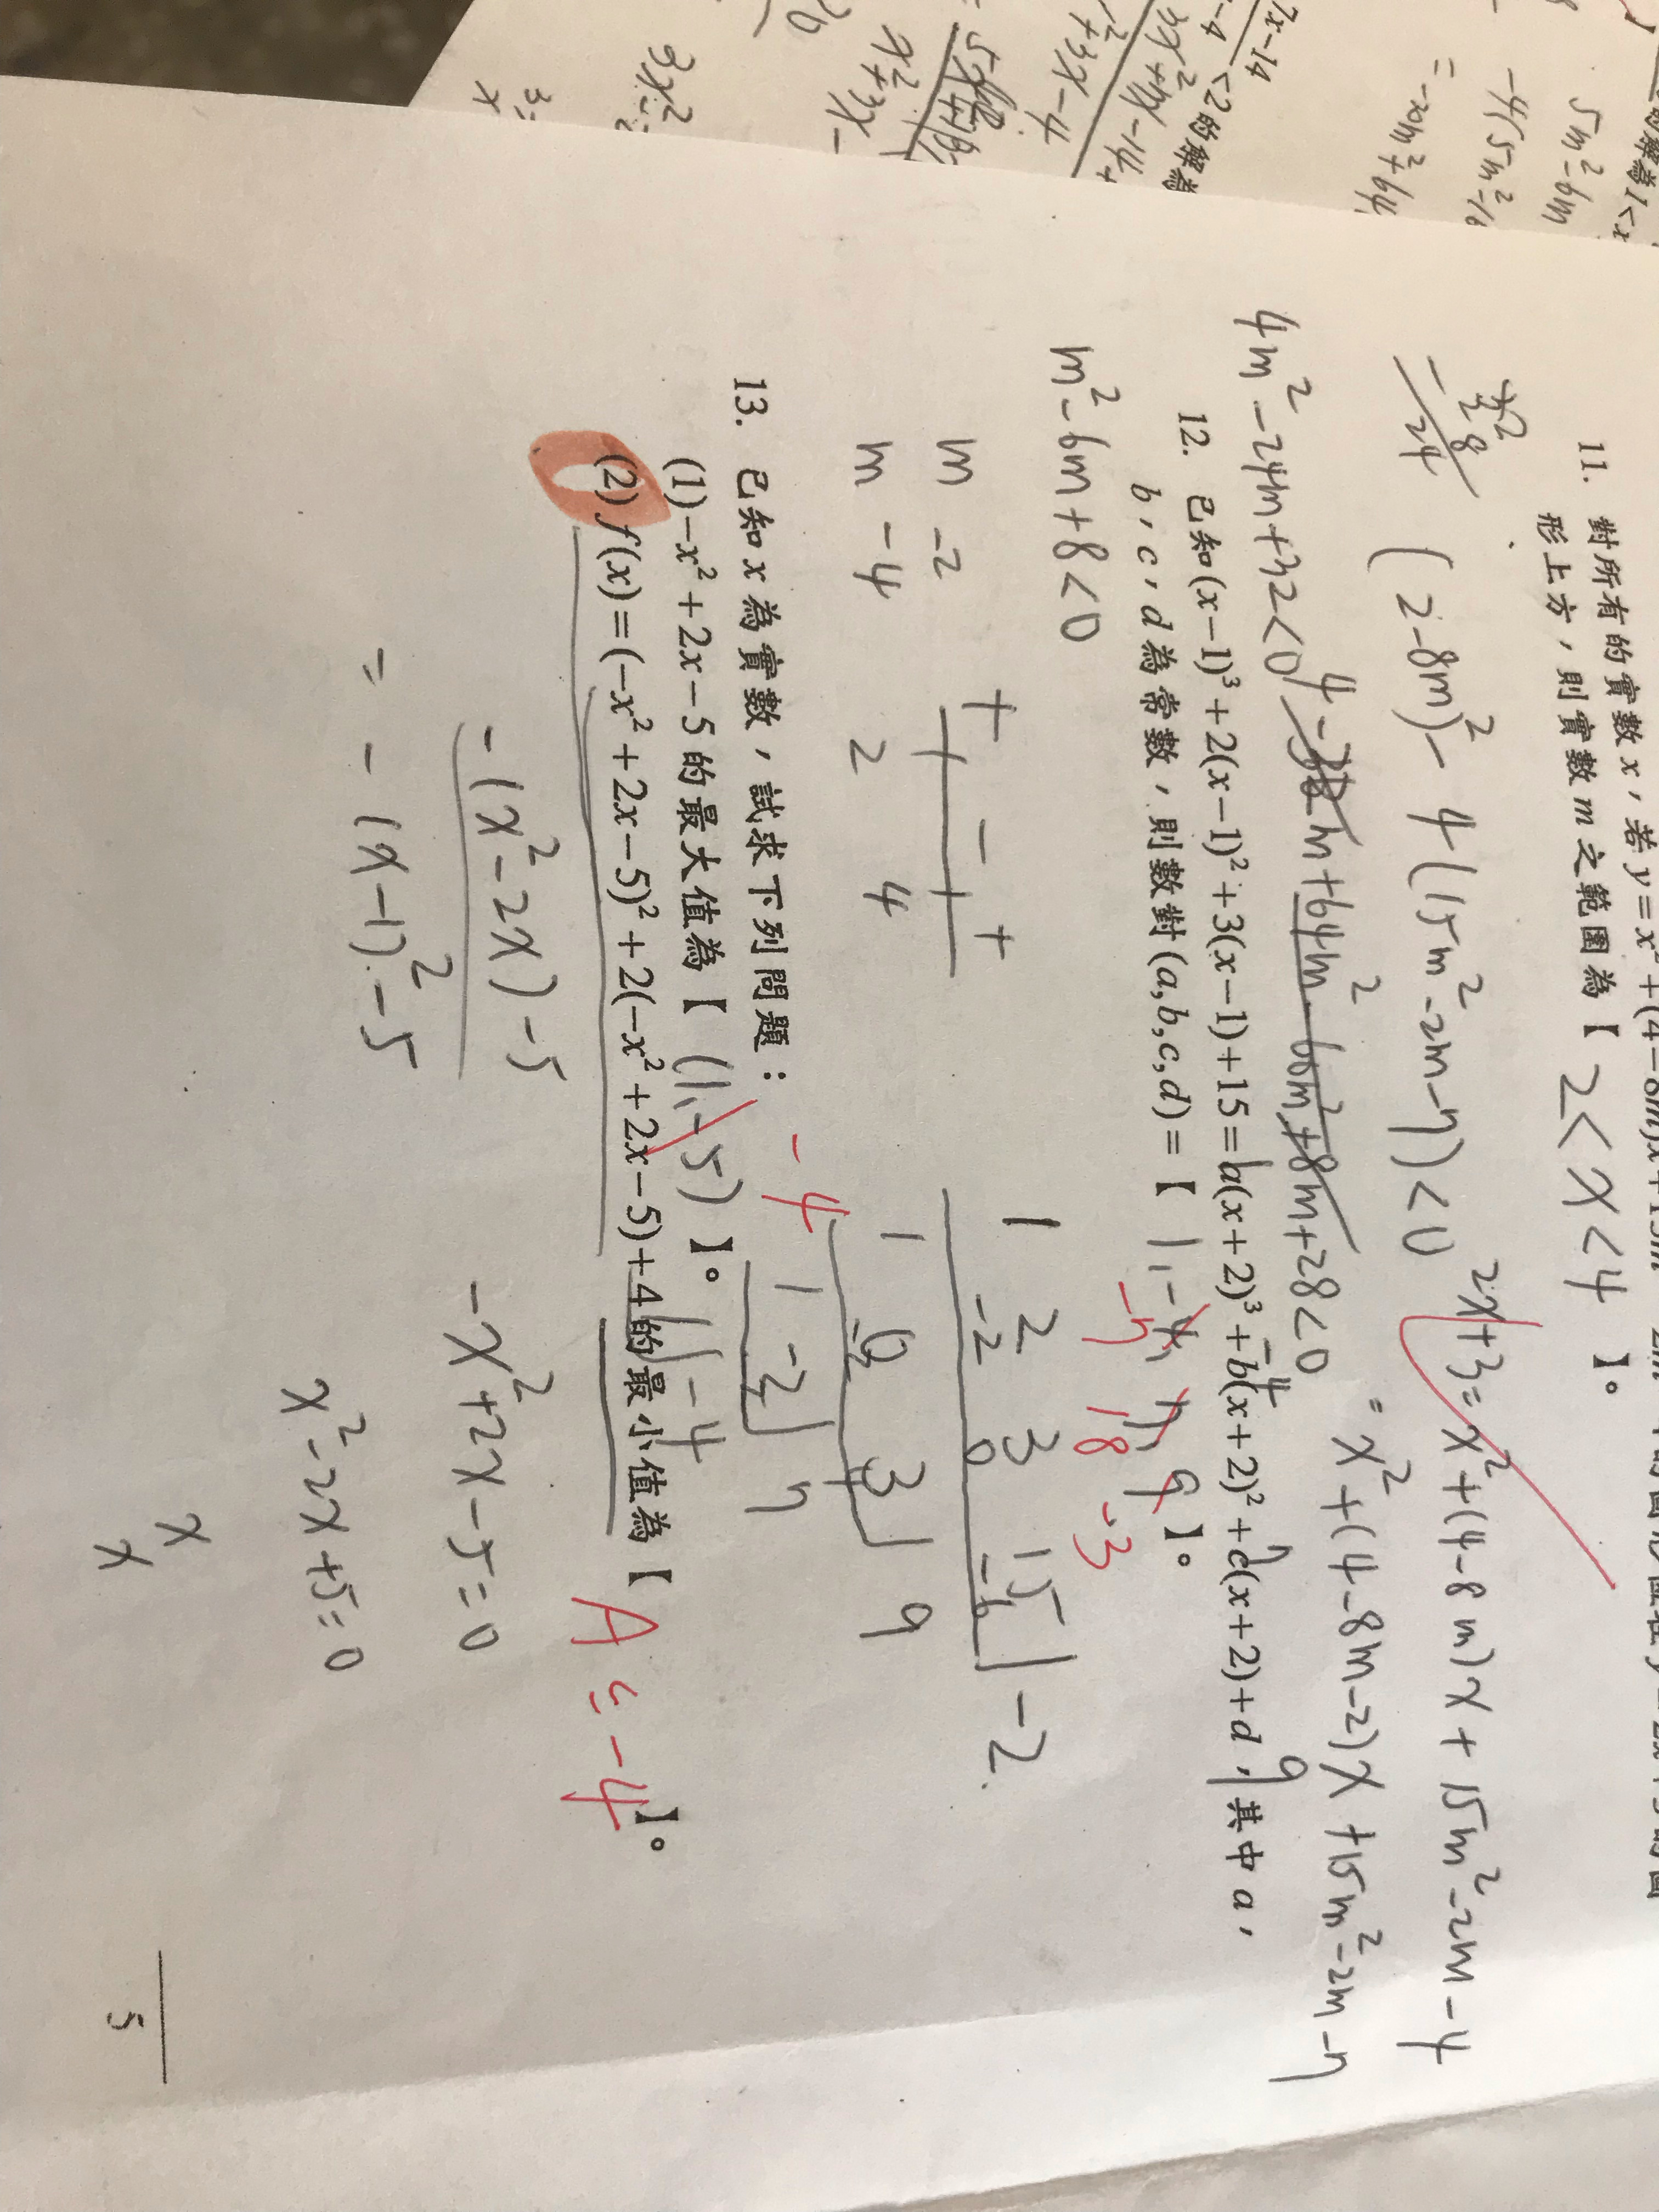 11. 對所有的實數 x，若 y=x²+(4-8m)x+15m²
形上方，則實數 m 之範圍為【 2<x<4 】。
2x+3=x²+(4-8m)x+15m²-2m-4
=x²+(4-8m-2)x+15m²-2m-7
(2-8m)²-4(15m²-2m-7)<0
4-32m+64m²-60m²+8m+28<0
4m²-24m+32<0
m²-6m+8<0
m -2
m -4
+ - +
2 4
12. 已知(x-1)³+2(x-1)²+3(x-1)+15=a(x+2)³+b(x+2)²+c(x+2)+d，其中 a，
b，c，d 為常數，則數對(a,b,c,d)=【 1,-4,7,9 】。
-7 18 -3
1 2 3 15 -2
-2 0 -6
1 0 3 9
1 -2 7
1 -4
13. 已知 x 為實數，試求下列問題：
(1)-x²+2x-5 的最大值為【 (1,-5) 】。
-4
(2) f(x)=(-x²+2x-5)²+2(-x²+2x-5)+4 的最小值為【 A≤-4 】。
-(x²-2x)-5
=-(x-1)²-5
-x²+2x-5=0
x²-2x+5=0
x
x
5